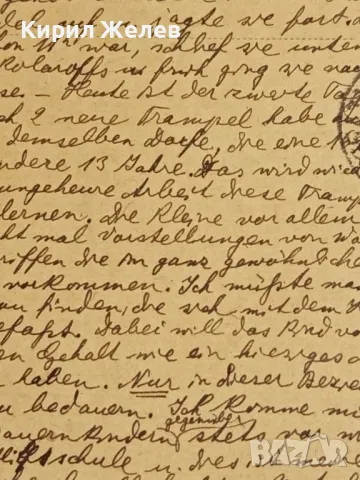 Кирил Желев
sagte sie fort
war, schlief sie unten
Kolaroffs in früh ging sie na
se. — Heute ist der zweite Ta
ch 2 neue Trampel habe au
demselben Dorfe, die eine 1
ndere 13 Jahre. Das wird wie
ungeheure Arbeit diese Tramp
lernen. Die Kleine vor allem
cht mal Vorstellungen von
riffen die in ganz gewöhnliche
vorkommen. Ich müsste ma
zu finden, die sich mit dem
befasst. Dabei will das Kind vo
en Gehalt wie ein hiesiges
haben. Nur in dieser Bezie
zu bedauern. Ich komme mi
gegenüber
auernkindern stets vor
schule u. dies ist me
bazar